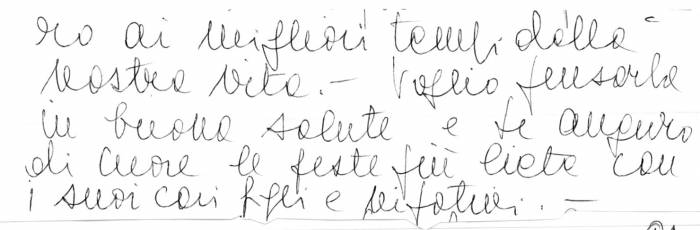 ro ai migliori tempi della
nostra vita. – Voglio pensarla
in buona salute e le auguro
di cuore le feste più liete con
i suoi cari figli e nipotini. –